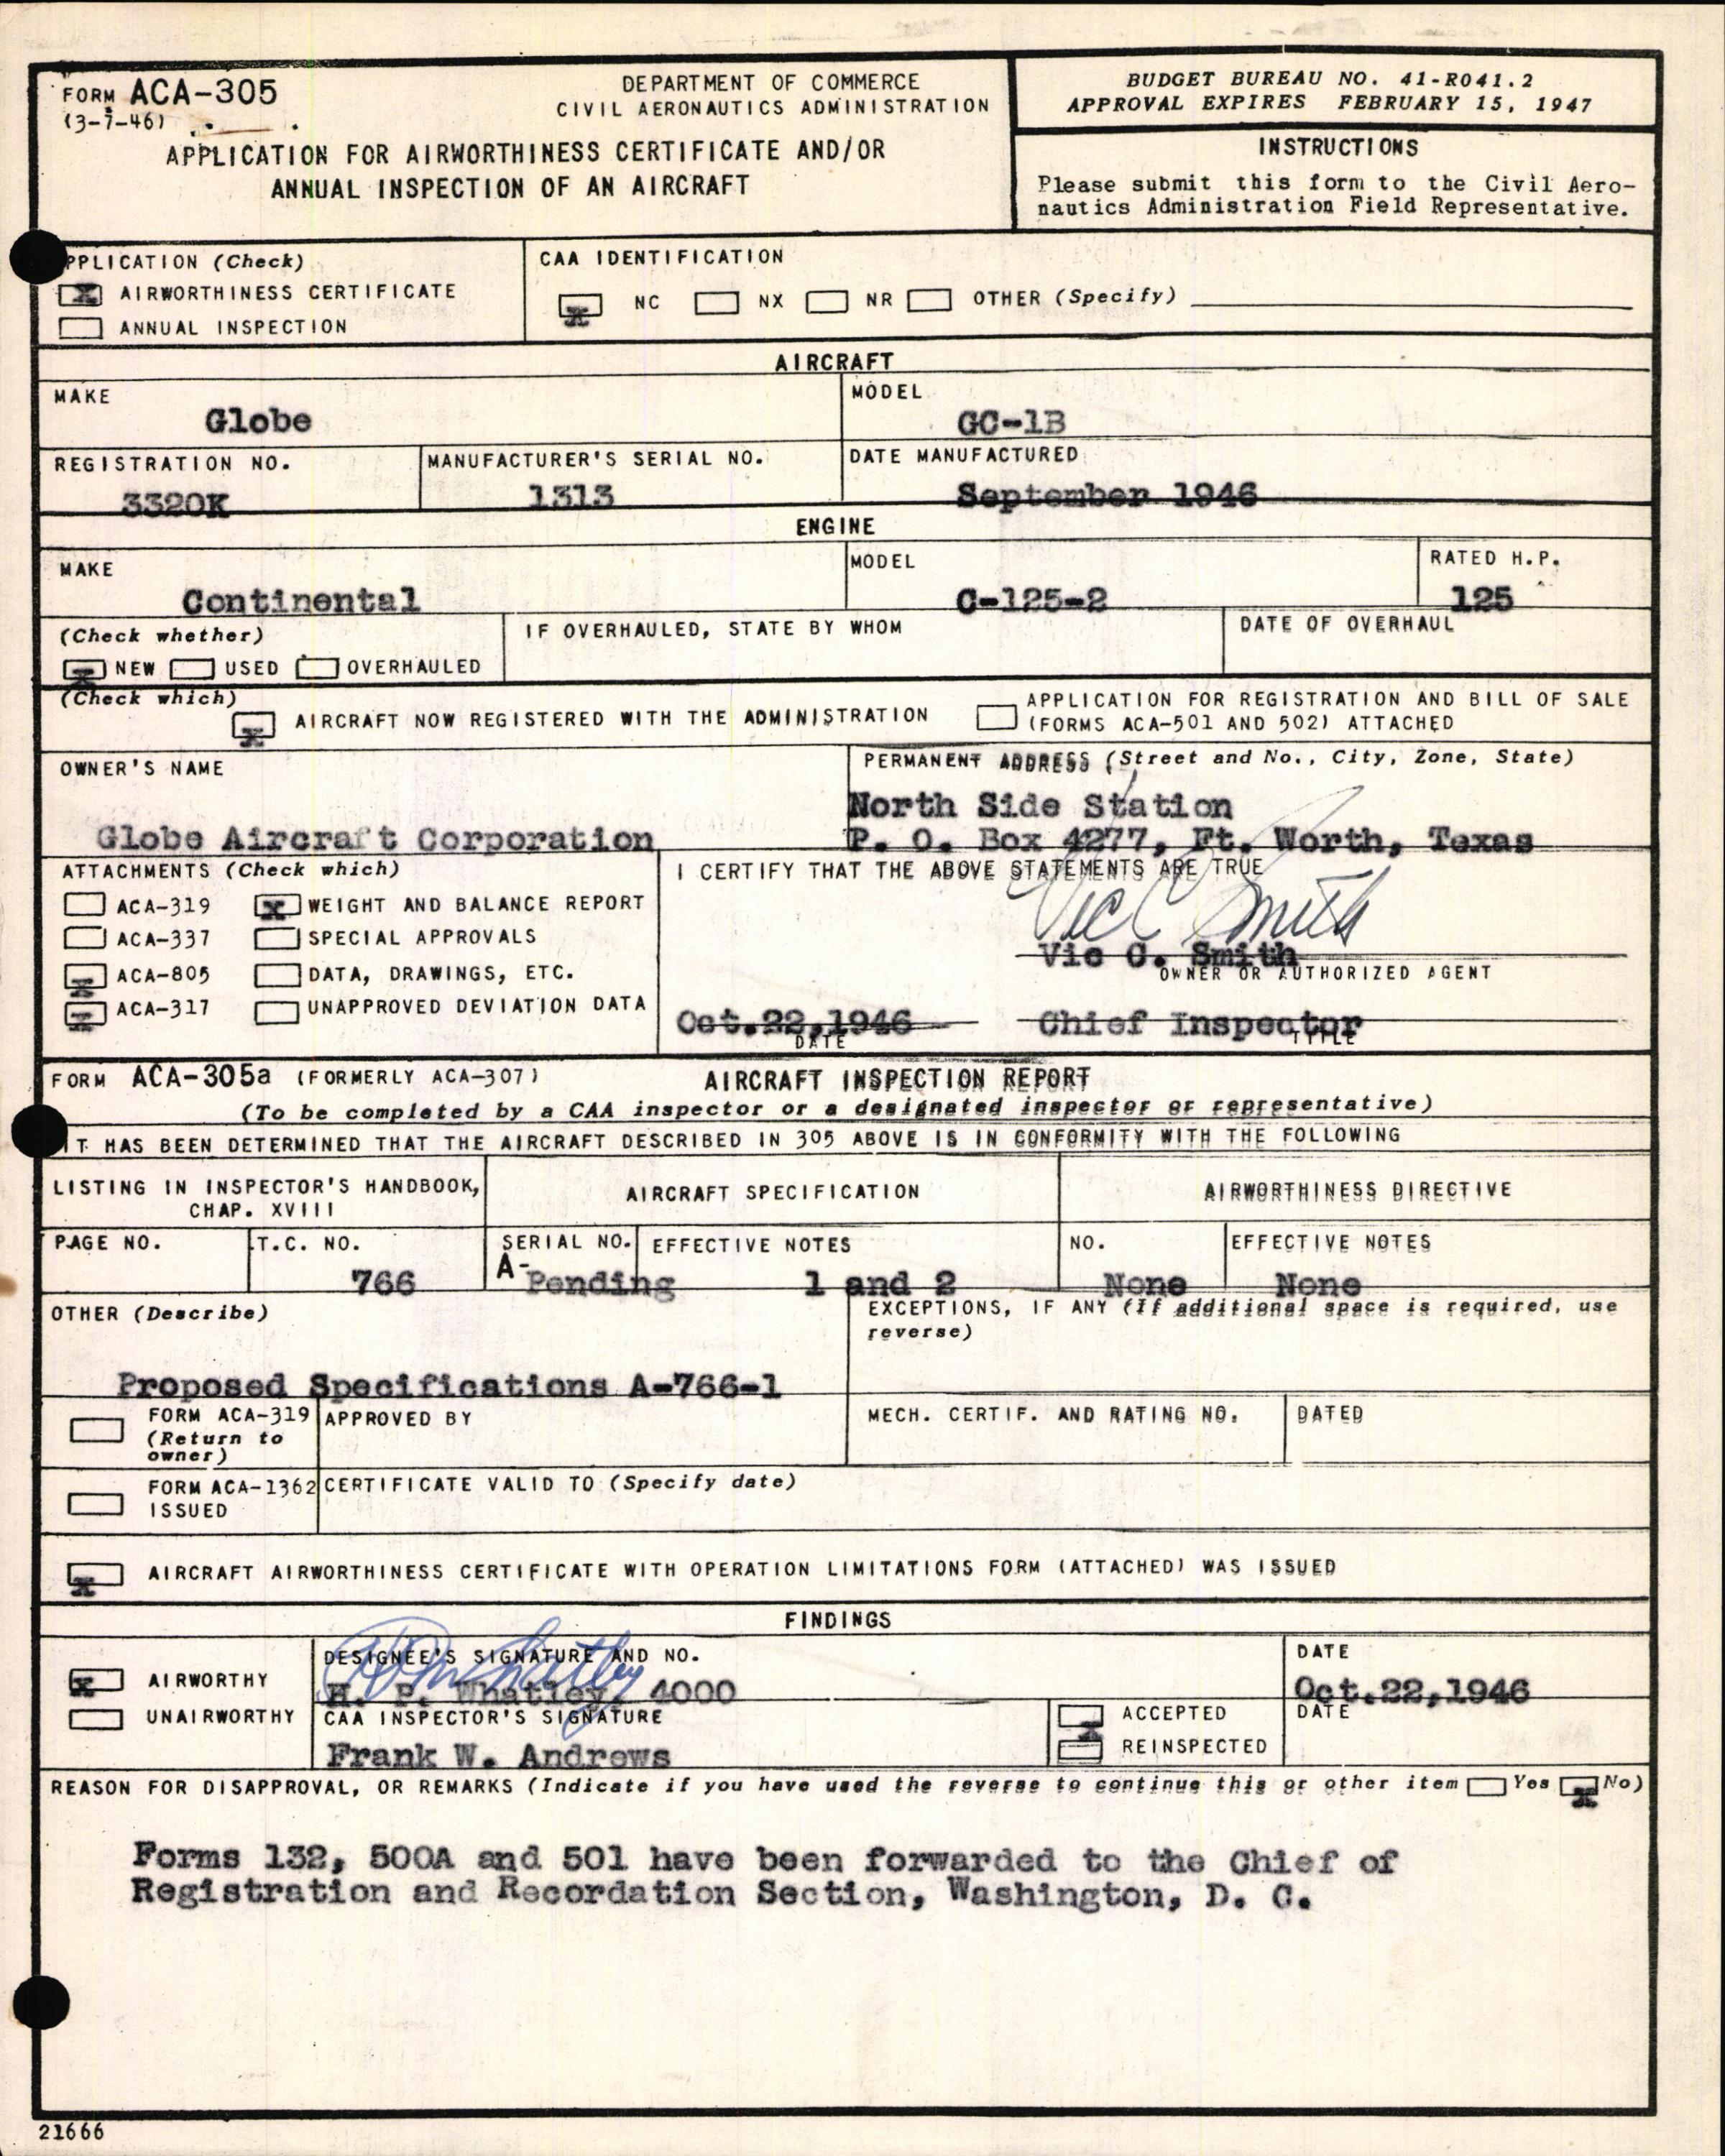 FORM ACA-305
(3-7-46)
DEPARTMENT OF COMMERCE
CIVIL AERONAUTICS ADMINISTRATION
APPLICATION FOR AIRWORTHINESS CERTIFICATE AND/OR
ANNUAL INSPECTION OF AN AIRCRAFT
BUDGET BUREAU NO. 41-R041.2
APPROVAL EXPIRES FEBRUARY 15, 1947
INSTRUCTIONS
Please submit this form to the Civil Aero-
nautics Administration Field Representative.
PPLICATION (Check)
X AIRWORTHINESS CERTIFICATE
ANNUAL INSPECTION
CAA IDENTIFICATION
X NC NX NR OTHER (Specify)
AIRCRAFT
MAKE
Globe
MODEL
GC-1B
REGISTRATION NO.
3320K
MANUFACTURER'S SERIAL NO.
1313
DATE MANUFACTURED
September 1946
ENGINE
MAKE
Continental
MODEL
C-125-2
RATED H.P.
125
(Check whether)
X NEW USED OVERHAULED
IF OVERHAULED, STATE BY WHOM
DATE OF OVERHAUL
(Check which)
X AIRCRAFT NOW REGISTERED WITH THE ADMINISTRATION
APPLICATION FOR REGISTRATION AND BILL OF SALE
(FORMS ACA-501 AND 502) ATTACHED
OWNER'S NAME
Globe Aircraft Corporation
PERMANENT ADDRESS (Street and No., City, Zone, State)
North Side Station
P. O. Box 4277, Ft. Worth, Texas
ATTACHMENTS (Check which)
ACA-319 X WEIGHT AND BALANCE REPORT
ACA-337 SPECIAL APPROVALS
X ACA-805 DATA, DRAWINGS, ETC.
X ACA-317 UNAPPROVED DEVIATION DATA
I CERTIFY THAT THE ABOVE STATEMENTS ARE TRUE
Vic C Smith
Vic C. Smith
OWNER OR AUTHORIZED AGENT
Oct.22,1946 Chief Inspector
DATE TITLE
FORM ACA-305a (FORMERLY ACA-307) AIRCRAFT INSPECTION REPORT
(To be completed by a CAA inspector or a designated inspector or representative)
IT HAS BEEN DETERMINED THAT THE AIRCRAFT DESCRIBED IN 305 ABOVE IS IN CONFORMITY WITH THE FOLLOWING
LISTING IN INSPECTOR'S HANDBOOK,
CHAP. XVIII
AIRCRAFT SPECIFICATION
AIRWORTHINESS DIRECTIVE
PAGE NO.
T.C. NO.
766
SERIAL NO.
A-Pending
EFFECTIVE NOTES
1 and 2
NO.
None
EFFECTIVE NOTES
None
OTHER (Describe)
Proposed Specifications A-766-1
EXCEPTIONS, IF ANY (If additional space is required, use
reverse)
FORM ACA-319
(Return to
owner)
APPROVED BY
MECH. CERTIF. AND RATING NO.
DATED
FORM ACA-1362
ISSUED
CERTIFICATE VALID TO (Specify date)
X AIRCRAFT AIRWORTHINESS CERTIFICATE WITH OPERATION LIMITATIONS FORM (ATTACHED) WAS ISSUED
FINDINGS
X AIRWORTHY
UNAIRWORTHY
DESIGNEE'S SIGNATURE AND NO.
H P Whatley
H. P. Whatley, 4000
DATE
Oct.22,1946
CAA INSPECTOR'S SIGNATURE
Frank W. Andrews
X ACCEPTED
REINSPECTED
DATE
REASON FOR DISAPPROVAL, OR REMARKS (Indicate if you have used the reverse to continue this or other item Yes X No)
Forms 132, 500A and 501 have been forwarded to the Chief of
Registration and Recordation Section, Washington, D. C.
21666